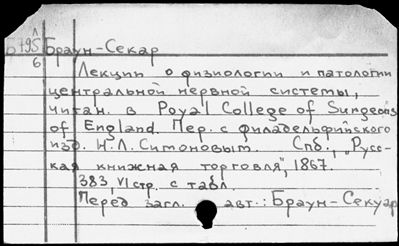 л
р795 Браун-Секар
6
Лекции о физиологии и патологии
центральной нервной системы,
читан. в Royal College of Surgeons
of England. Пер. с филадельфийского
изд. Н.Л. Симоновым. Спб., „Русс-
кая книжная торговля", 1867.
383, VI стр. с табл.
Перед загл. авт.: Браун-Секуар